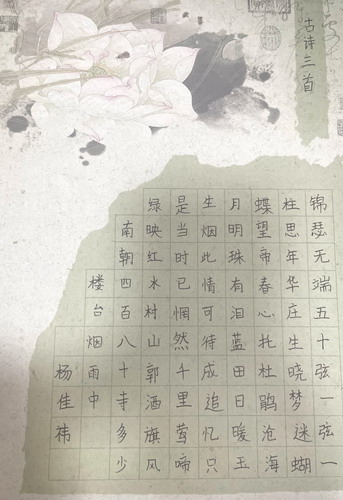 古诗三首
锦瑟无端五十弦一弦一
柱思年华庄生晓梦迷蝴
蝶望帝春心托杜鹃沧海
月明珠有泪蓝田日暖玉
生烟此情可待成追忆只
是当时已惘然千里莺啼
绿映红水村山郭酒旗风
南朝四百八十寺多少
楼台烟雨中
杨佳祎